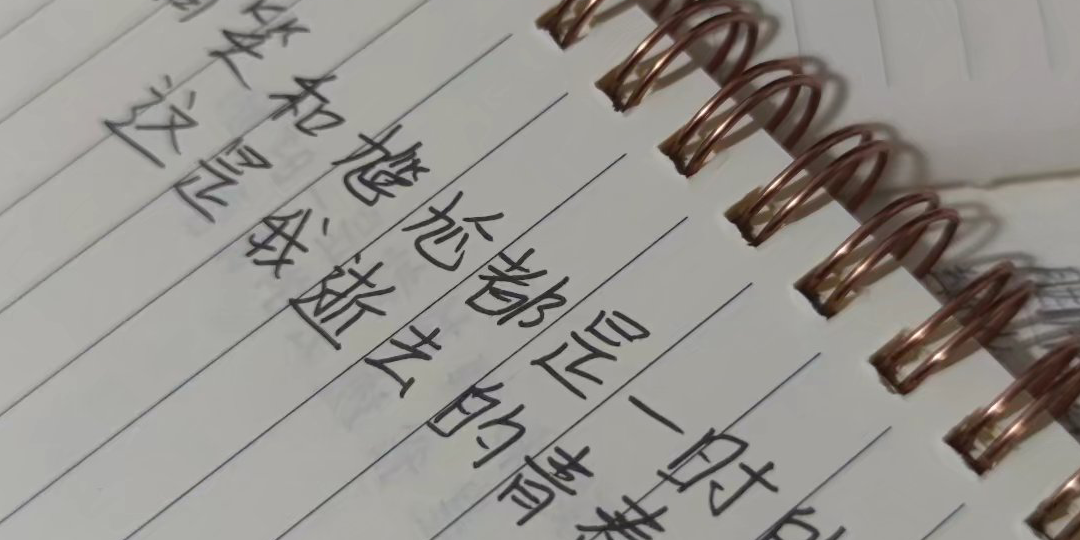 笑和尴尬都是一时的
这是我逝去的青春